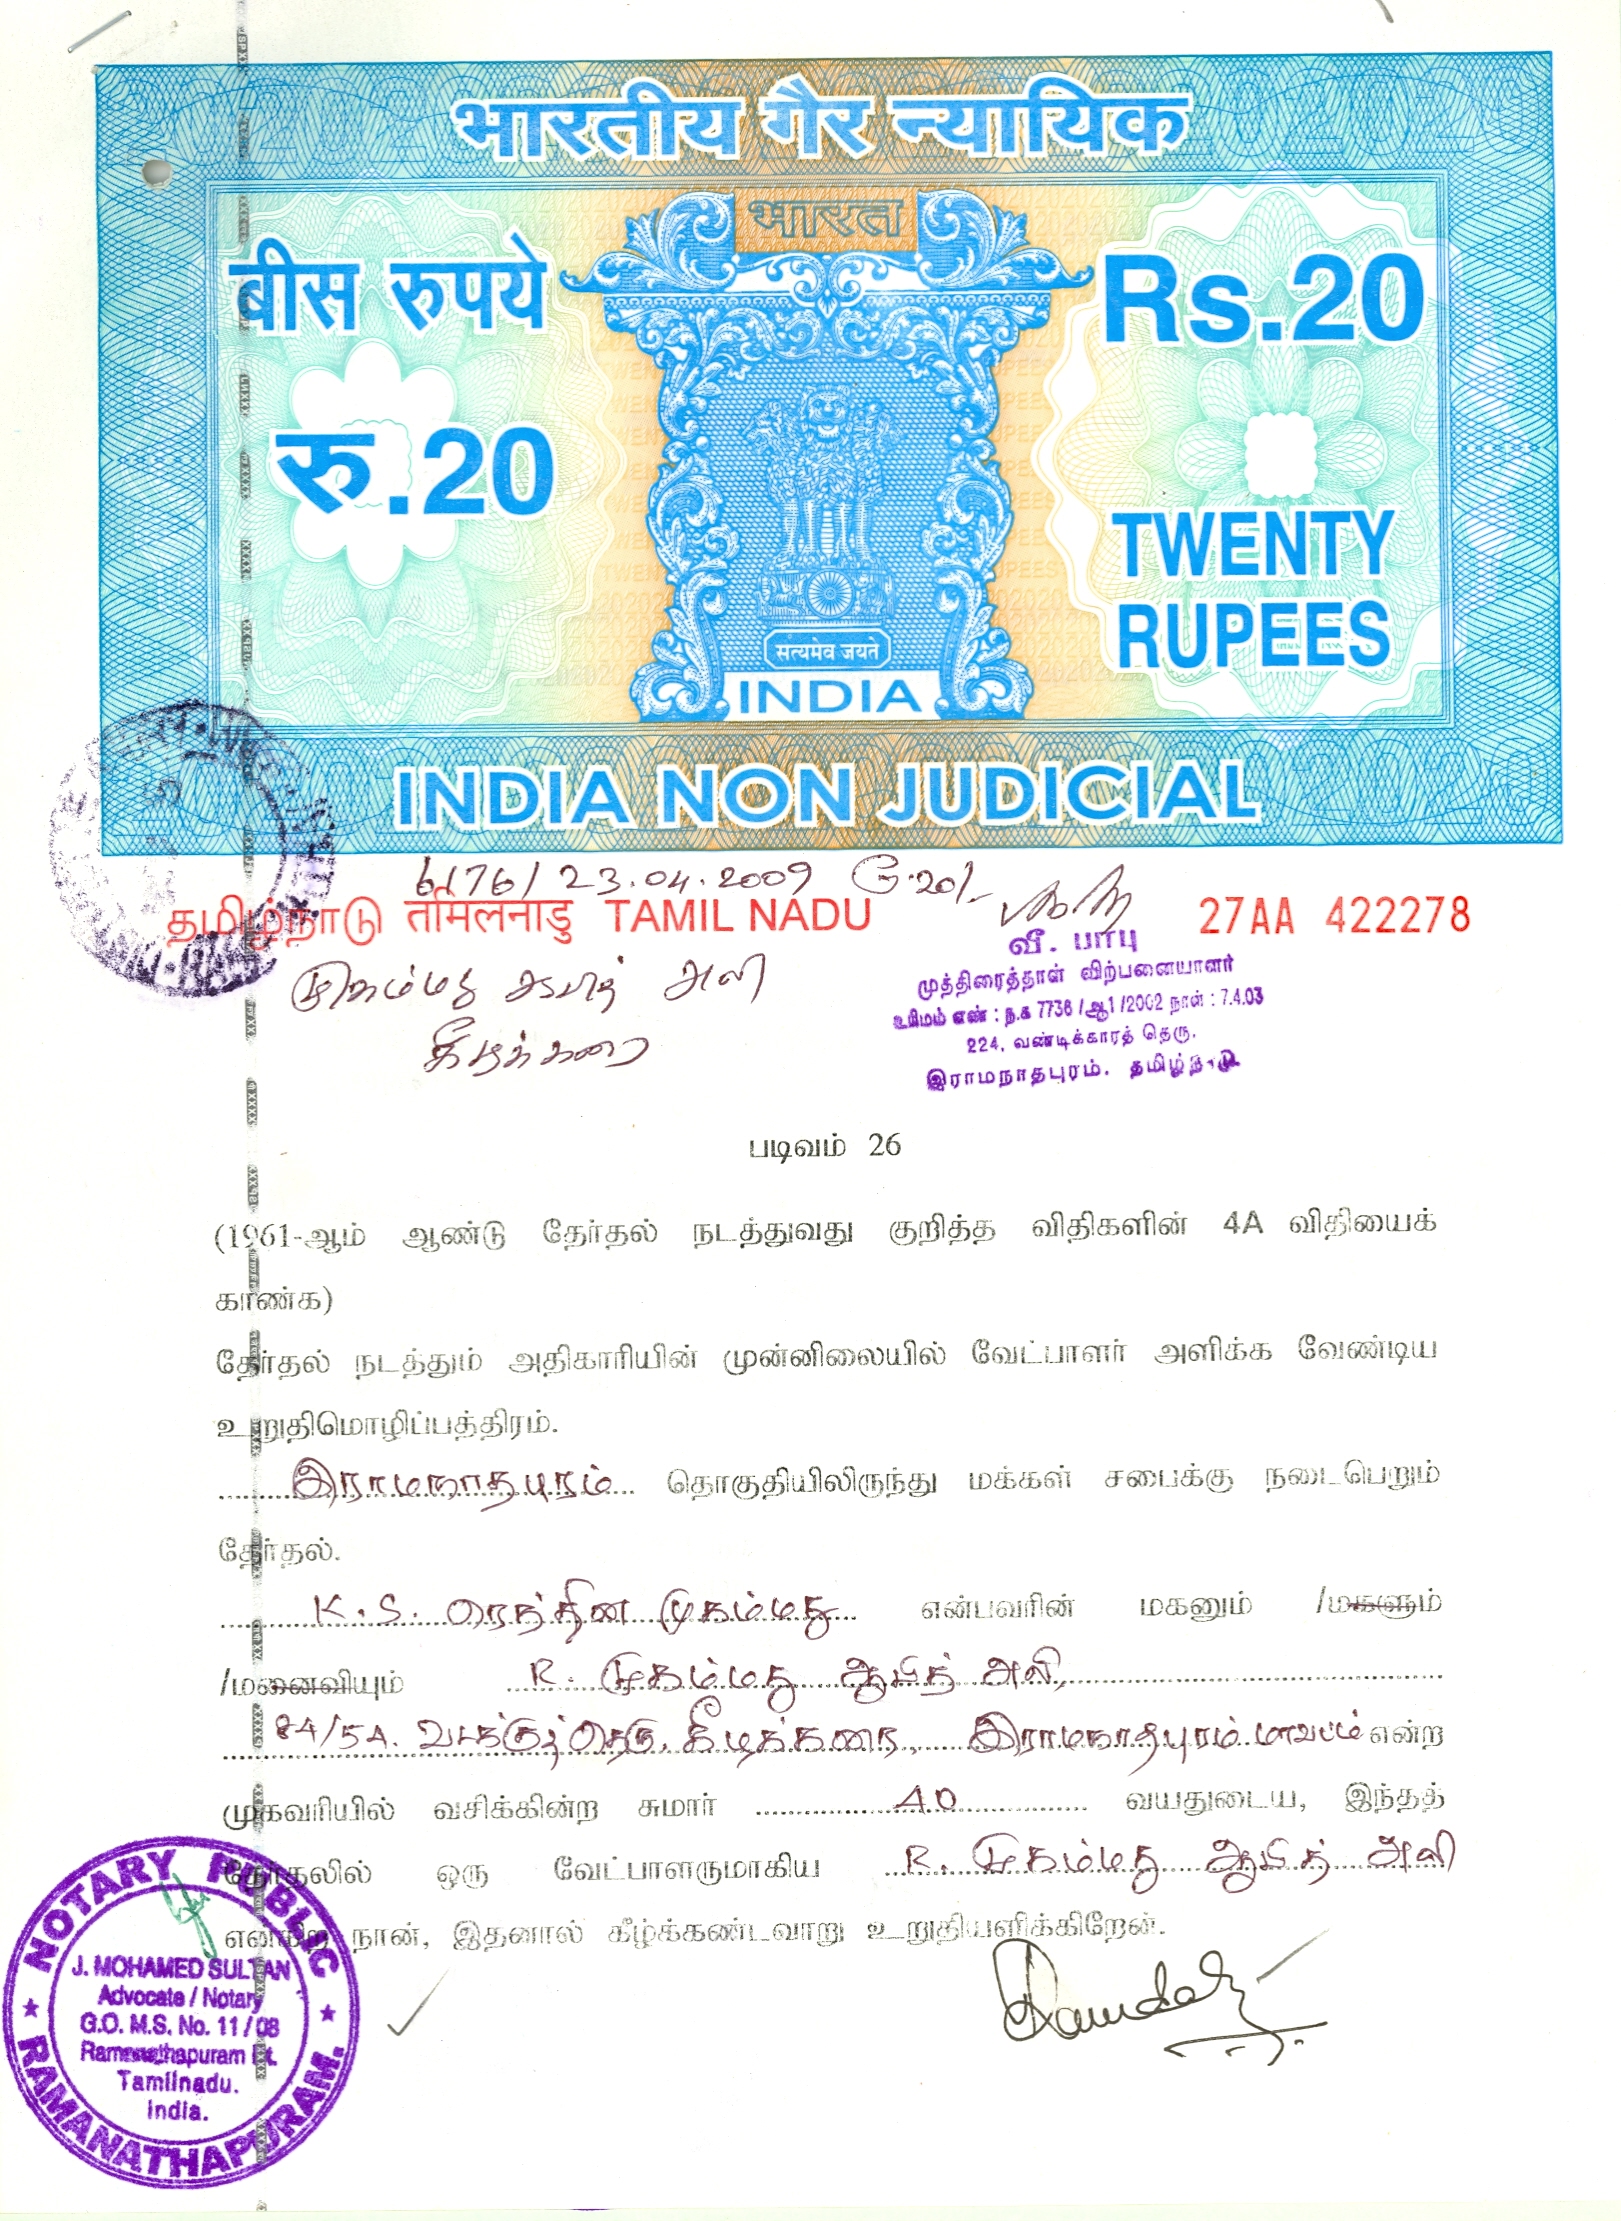 भारतीय गैर न्यायिक
भारत
बीस रुपये
Rs.20
रु.20
TWENTY
RUPEES
सत्यमेव जयते
INDIA
INDIA NON JUDICIAL
6176/23.04.2009 ரூ.20/-
தமிழ்நாடு तमिलनाडु TAMIL NADU
27AA 422278
முகம்மது ஆபித் அலி
கீழக்கரை
வீ. பாபு
முத்திரைத்தாள் விற்பனையாளர்
உரிமம் எண் : ந.க 7736 /ஆ1 /2002 நாள் : 7.4.03
224, வண்டிக்காரத் தெரு.
இராமநாதபுரம். தமிழ்நாடு
படிவம் 26
(1961-ஆம் ஆண்டு தேர்தல் நடத்துவது குறித்த விதிகளின் 4A விதியைக்
காண்க)
தேர்தல் நடத்தும் அதிகாரியின் முன்னிலையில் வேட்பாளர் அளிக்க வேண்டிய
உறுதிமொழிப்பத்திரம்.
இராமநாதபுரம் தொகுதியிலிருந்து மக்கள் சபைக்கு நடைபெறும்
தேர்தல்.
K.S. ரெத்தின முகம்மது என்பவரின் மகனும் /மகளும்
/மனைவியும் R. முகம்மது ஆபித் அலி,
84/5A. வடக்குத்தெரு, கீழக்கரை, இராமநாதபுரம் மாவட்டம் என்ற
முகவரியில் வசிக்கின்ற சுமார் 40 வயதுடைய, இந்தத்
தேர்தலில் ஒரு வேட்பாளருமாகிய R. முகம்மது ஆபித் அலி
என்கிற நான், இதனால் கீழ்க்கண்டவாறு உறுதியளிக்கிறேன்.
NOTARY PUBLIC
J. MOHAMED SULTAN
Advocate / Notary
G.O. M.S. No. 11/08
Ramanathapuram Dt.
Tamilnadu.
India.
RAMANATHAPURAM.